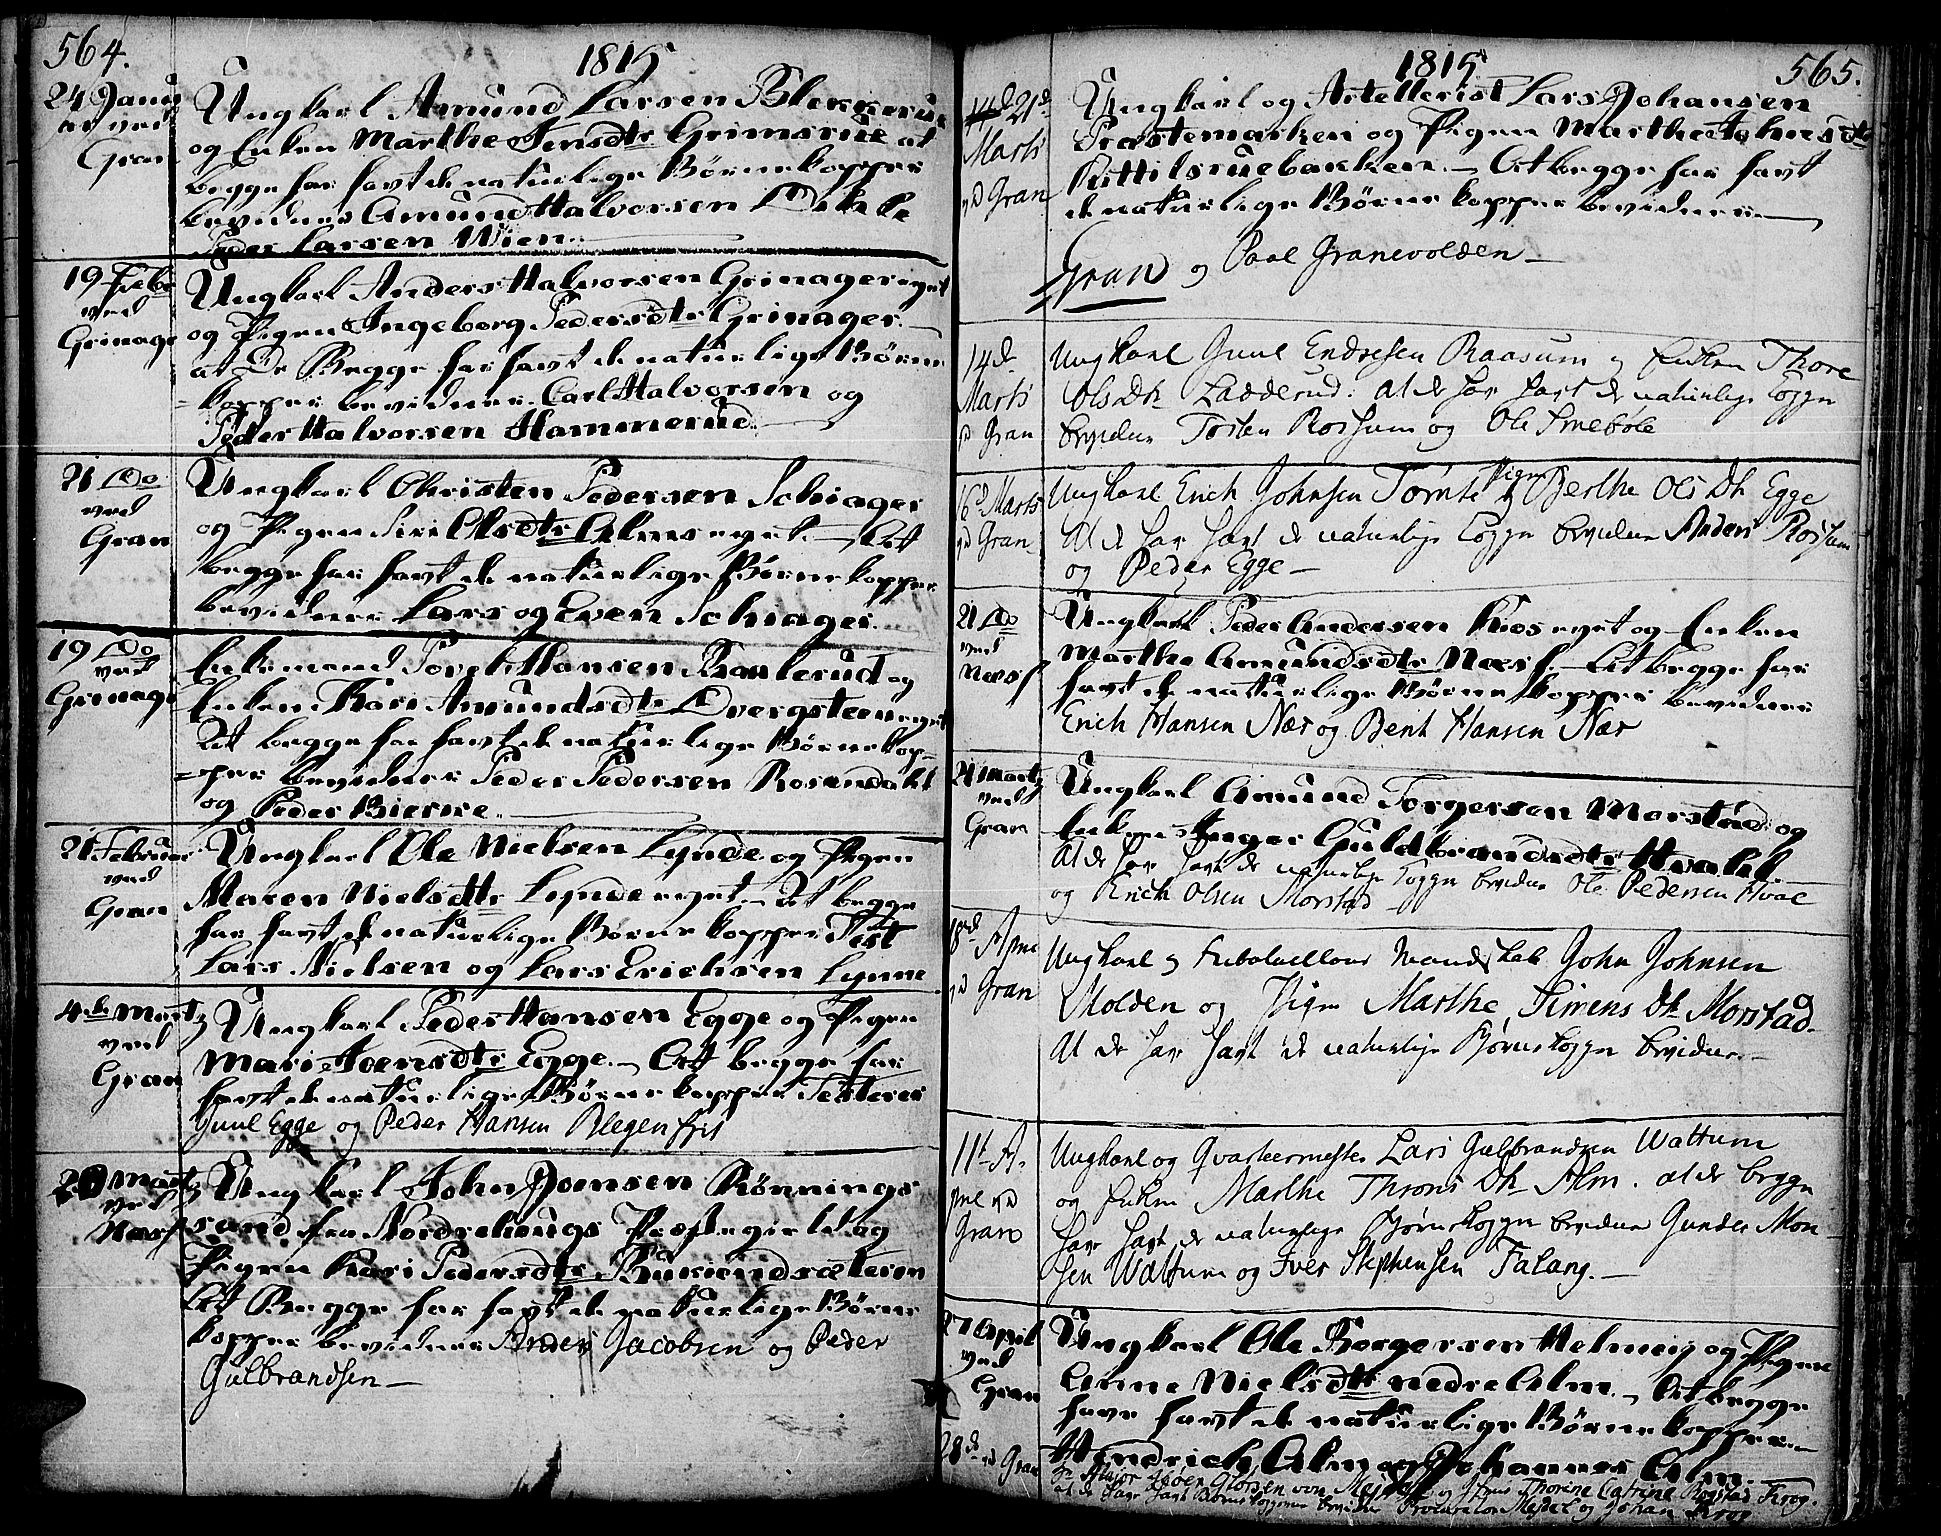 564.
1815
24 Januarii ved Gran
Ungkarl Amund Larsen Blekkerue
og Enken Marthe Jensdtr Grimsrue at
begge har havt de naturlige Børnekopper
bevidner Amund Halvorsen Dihle
Peder Larsen Wien.
19 Febr ved Grinager
Ungkarl Anders Halvorsen Grinagereyet
og Pigen Ingeborg Pedersdtr Grinager
at De Begge har havt de naturlige Børne
kopper bevidner Carl Halvorsen og
Peder Halvorsen Hammerud
21 Do ved Gran
Ungkarl Christen Pedersen Schiager
og Pigen Siri Olsdtr Almseyet. At
begge har havt de naturlige Børnekopper
bevidner Lars og Even Schiager.
19 Do ved Grinager
Enkemand Hansen og
Enken Kari Amundsdtr Dvergsteneyet
At begge har havt de naturlige Børnekop-
per bevidner Peder Pedersen Rosendahl
og Peder Bierke.
21 Februar ved Gran
Ungkarl Ole Nielsen Lynde og Pigen
Maren Nielsdtr Lyndeeyet. At begge
har havt de naturlige Børnekopper Test
Lars Nielsen og Lars Erichsen Lynne
4de Martz ved Gran
Ungkarl Peder Hansen Egge og Pigen
Mari Iversdtr Egge. At begge har
havt de naturlige Børnekopper Testerer
Guul Egge og Peder Hansen Blegenfris
20 Martz ved Næss
Ungkarl John Joensen Rønnings
sand fra Nordrehougs Præstegield og
Pigen Kari Pedersdtr
At Begge har havt de naturlige Børne
kopper bevidner Anders Jacobsen og Peder
Gulbrandsen
1815
565.
21d Marts vd Gran
Ungkarl og Artellerist Lars Johansen
Præstemarken og Pigen Marthe Johnsdtr
Kittilsruebakken. At begge har havt
de naturlige Børnekopper bevidner
Gran og Paal Granevolden
14d Marts vd Gran
Ungkarl Guul Endresen Raasum og Enken Thore
Ols Dtr Ladderud: at de har havt de naturlige Kopper
bevidner Tosten Rossum og Ole Smebøle
16d Marts vd Gran
Ungkarl Erich Johnsen Tømte og Pigen Berthe Ols Dtr Egge
At de har havt de naturlige Kopper bevidner Anders Rossum
og Peder Egge
21 Do ved Næss
Ungkarl Peder Andersen Kioseyet og Enken
Marthe Amundsdtr Næss. At begge har
havt de naturlige Børnekopper bevidner
Erich Hansen Nær og Bent Hansen Nær
21 Martz ved Gran
Ungkarl Amund Torgersen Morstad og
Enken Inger Guldbrandsdtr Hvahl.
At de har havt de naturlige Kopper bevidner Ole Pedersen Hval
og Erich Olsen Morstad
18d Aprie vd Gran
Ungkarl og Mandskab John Johnsen
Molden og Pigen Marthe Simens Dtr Morstad.
At de har havt de naturlige Børnekopper bevidner
11t Aprie vd Gran
Ungkarl og Qvarteermester Lars Gulbrandsen Wattum
og Enken Marthe Throns Dtr Alm. at de begge
har havt de naturlige Børnekopper bevidner Gunder Mon-
sen Wattum og Iver Stephensen Falang.
27 April ved Gran
Ungkarl Ole Borgersen Helmey og Pigen
Anne Nielsdtr nedre Alm. At begge
have havt de naturlige Børnekopper
Hendrich Alm og Johannes Alm.
28de vd Gran
Hr Major von og Jfru Thorine Catrine Krog.
at de have havt Børnekopperne bevidner Procurator og Johan Krog